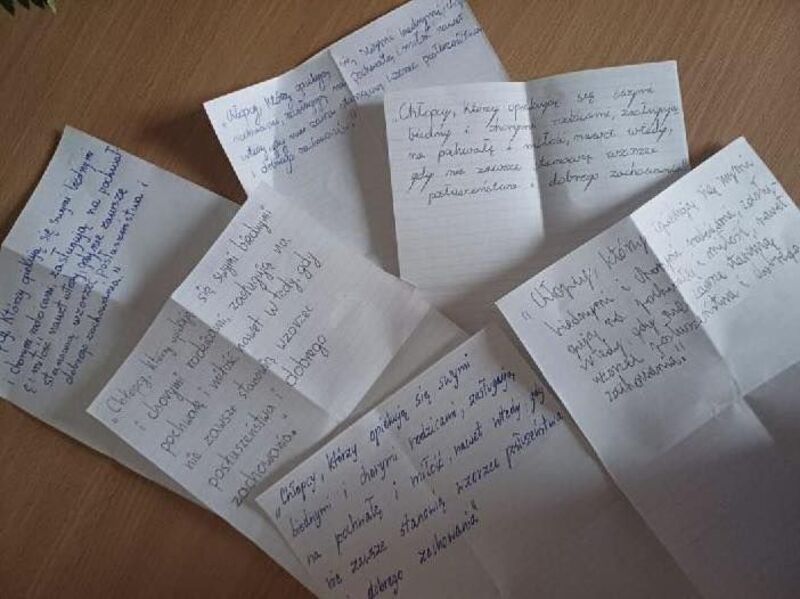 "Chłopcy, którzy opiekują się swymi biednymi, i
rodzicami, zasługują na pochwałę i miłość nawet
wtedy, gdy nie zawsze stanowią wzorzec posłuszeństwa
dobrego zachowania."
"Chłopcy, którzy opiekują się swymi
biedny i chorymi rodzicami, zasługują
na pochwałę i miłość, nawet wtedy,
gdy nie zawsze stanowią wzorzec
posłuszeństwa i dobrego zachowania"
którzy opiekują się swymi biednymi
i chorymi rodzicami, zasługują na pochwałę
i miłość nawet wtedy gdy nie zawsze
stanowią wzorzec posłuszeństwa i
dobrego zachowania"
"Chłopcy, którzy się swymi biednymi
i chorymi rodzicami zasługują na
pochwałę i miłość nawet w tedy gdy
nie zawsze stanowią wzorzec
posłuszeństwa i dobrego
zachowania."
"Chłopcy, którzy opiekują się swymi
biednymi i chorymi rodzicami, zasłu-
gują na pochwałę i miłość, nawet
wtedy gdy nie zawsze stanowią
wzorzec posłuszeństwa i dobrego
zachowania."
"Chłopcy, którzy opiekują się swymi
biednymi i chorymi rodzicami, zasługują
na pochwałę i miłość, nawet wtedy, gdy
nie zawsze stanowią wzorzec posłuszeństwa
i dobrego zachowania"